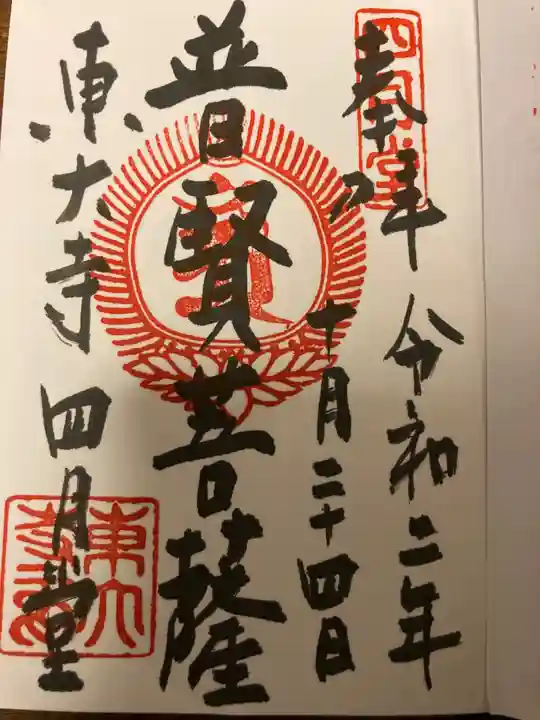 四月堂
奉拝
令和二年
十月二十四日
普賢菩薩
東大寺 四月堂